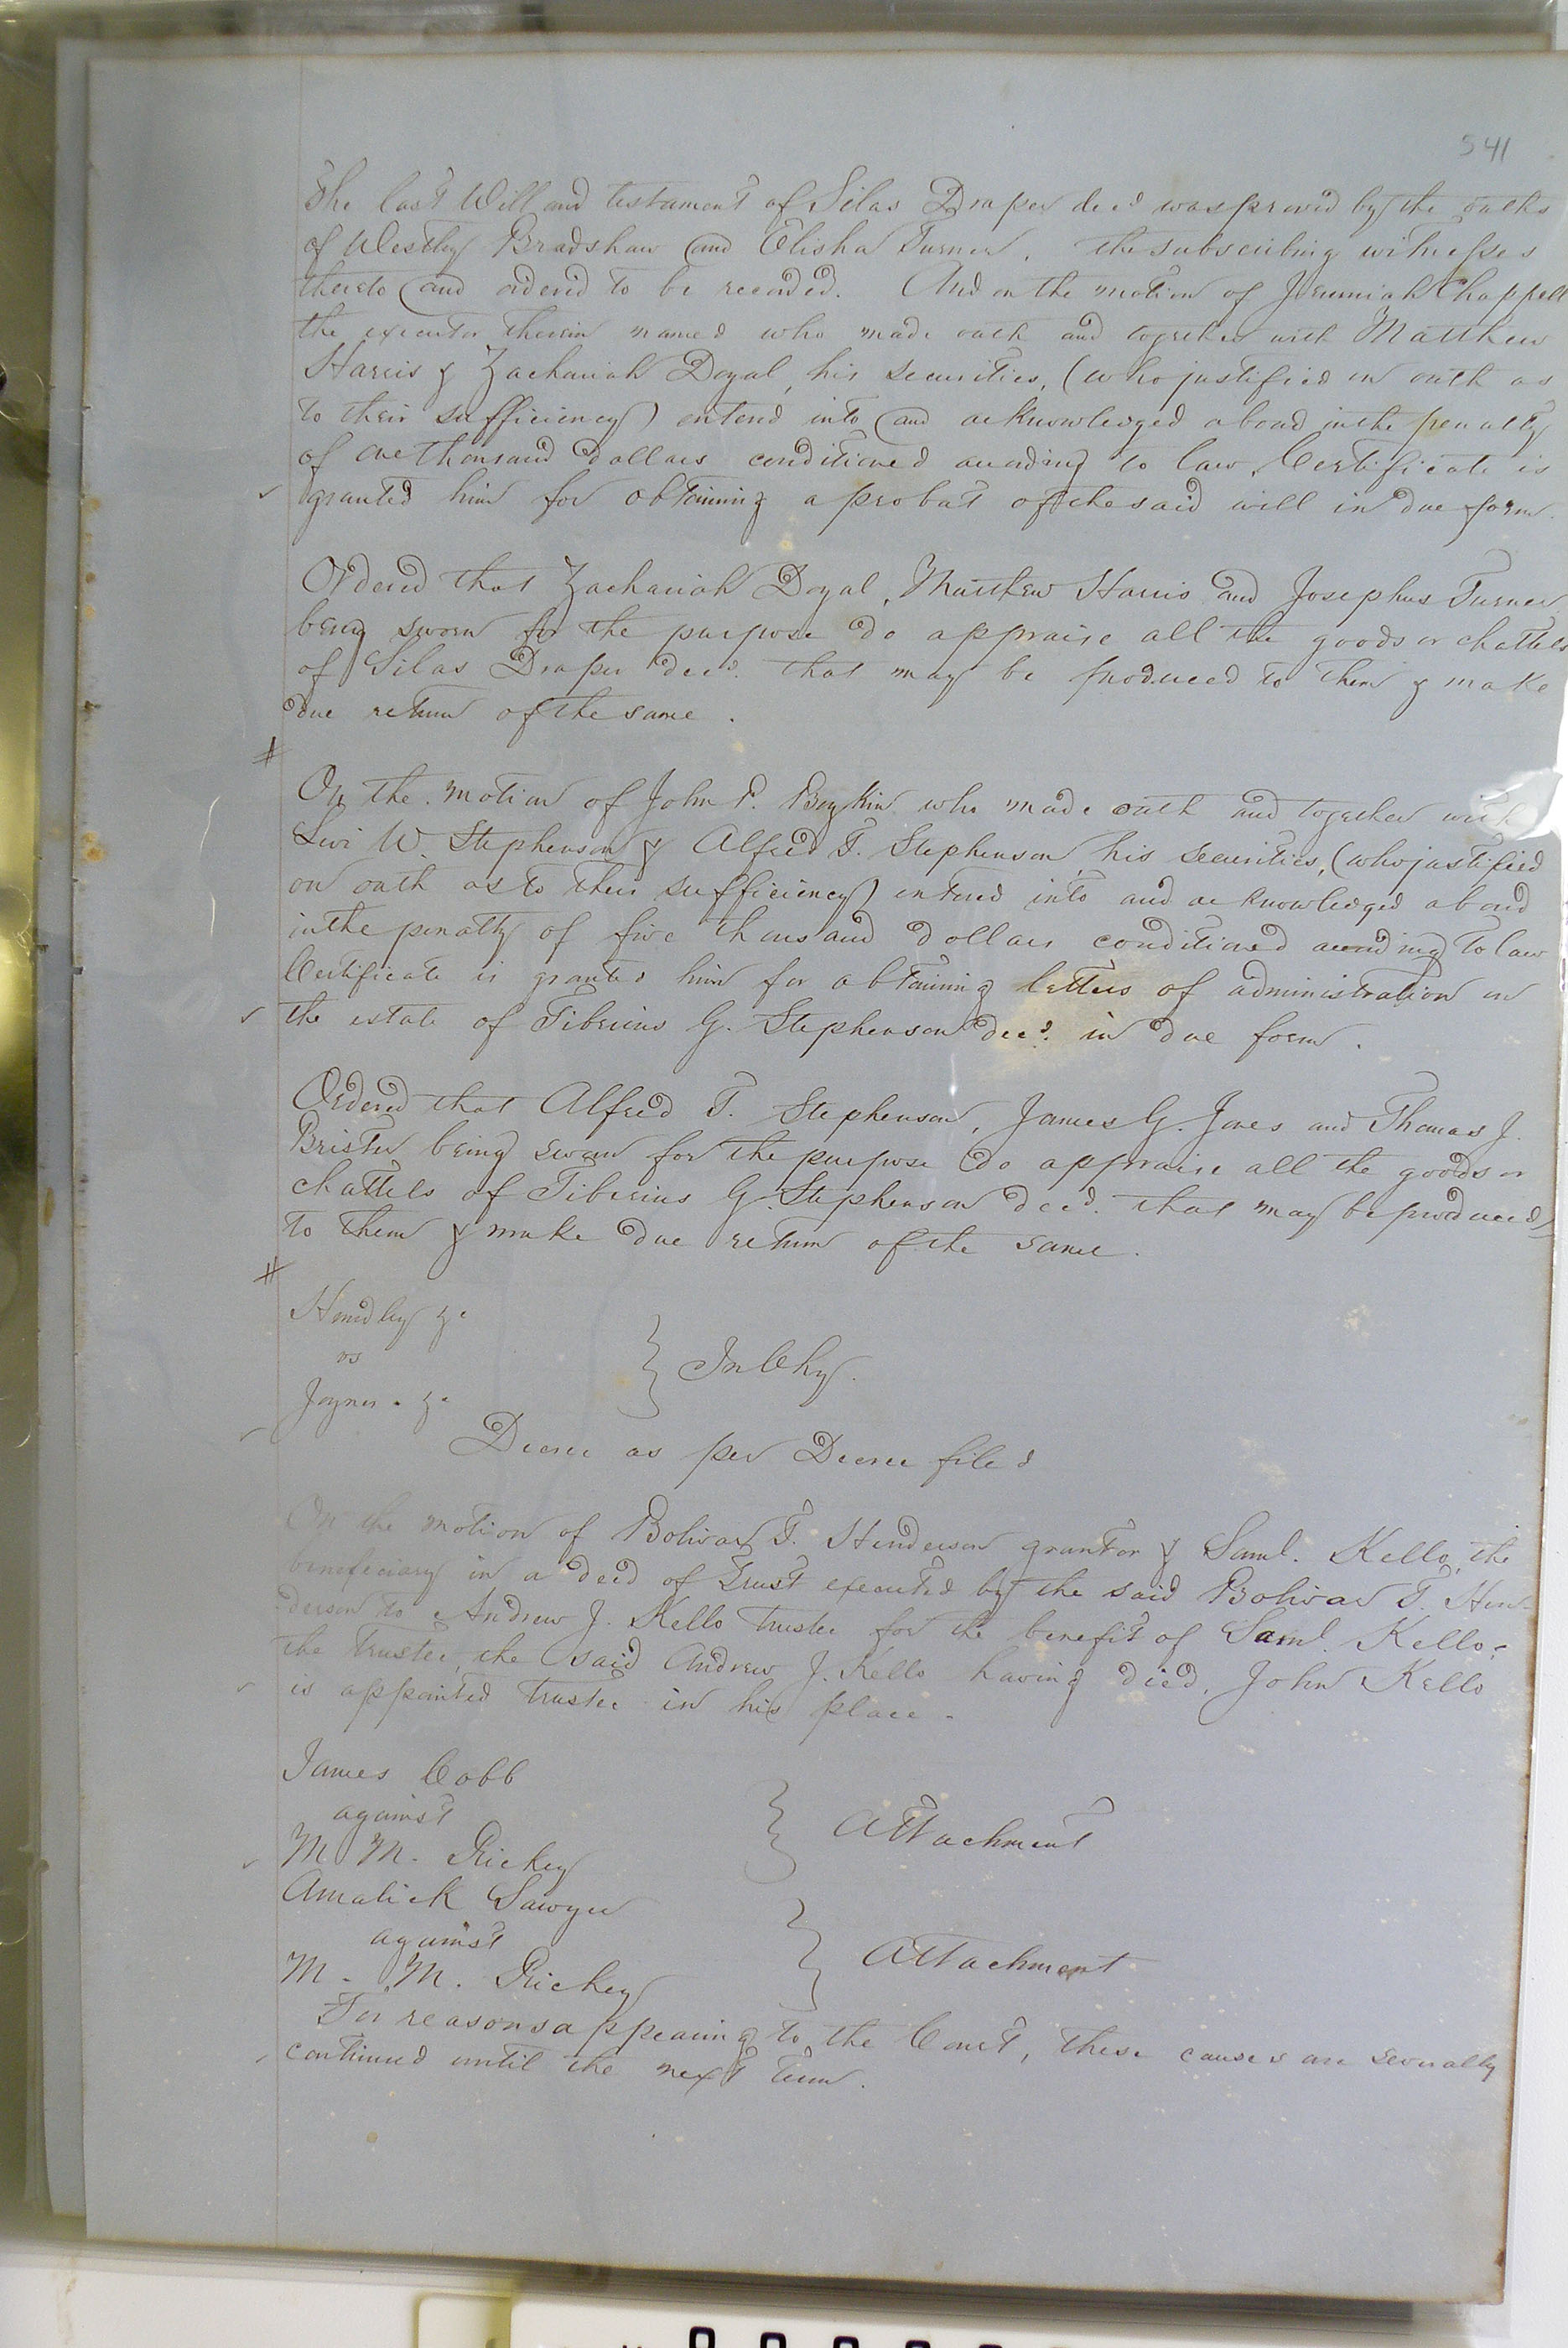 541
The last Will and testament of Silas Draper decd was proved by the oaths
of Westley Bradshaw and Elisha Turner, the subscribing witnesses
thereto and ordered to be recorded. And on the motion of Jeremiah Chappell
the executor therein named who made oath and together with Matthew
Harris & Zachariah Doyal, his securities, (who justified on oath as
to their sufficiency) entered into and acknowledged a bond in the penalty
of one thousand dollars conditioned according to law, Certificate is
granted him for obtaining a probat of the said will in due form.
Ordered that Zachariah Doyal, Matthew Harris and Josephus Turner
being sworn for the purpose do appraise all the goods or chattels
of Silas Draper decd. that may be produced to them & make
due return of the same.
On the motion of John P. Boykin who made oath and together with
Levi W. Stephenson & Alfred T. Stephenson, his securities, (who justified
on oath as to their sufficiency) entered into and acknowledged a bond
in the penalty of five thousand dollars conditioned according to law
Certificate is granted him for obtaining letters of administration on
the estate of Tiberius G. Stephenson decd. in due form.
Ordered that Alfred T. Stephenson, James G. Jones and Thomas J.
Brister being sworn for the purpose do appraise all the goods or
chattels of Tiberius G. Stephenson decd. that may be produced
to them & make due return of the same.
Hundley &c
vs
Joyner &c
} In Chy.
Decree as per Decree filed
On the motion of Bolivar T. Henderson grantor & Saml. Kello, the
beneficiary in a deed of Trust executed by the said Bolivar T. Hen-
derson to Andrew J. Kello trustee for the benefit of Saml. Kello;
the Trustee, the said Andrew J. Kello having died, John Kello
is appointed trustee in his place.
James Cobb
against
M M. Rickey
} Attachment
Amalick Sawyer
against
M. M. Rickey
} Attachment
For reasons appearing to the Court, these causes are severally
continued until the next term.